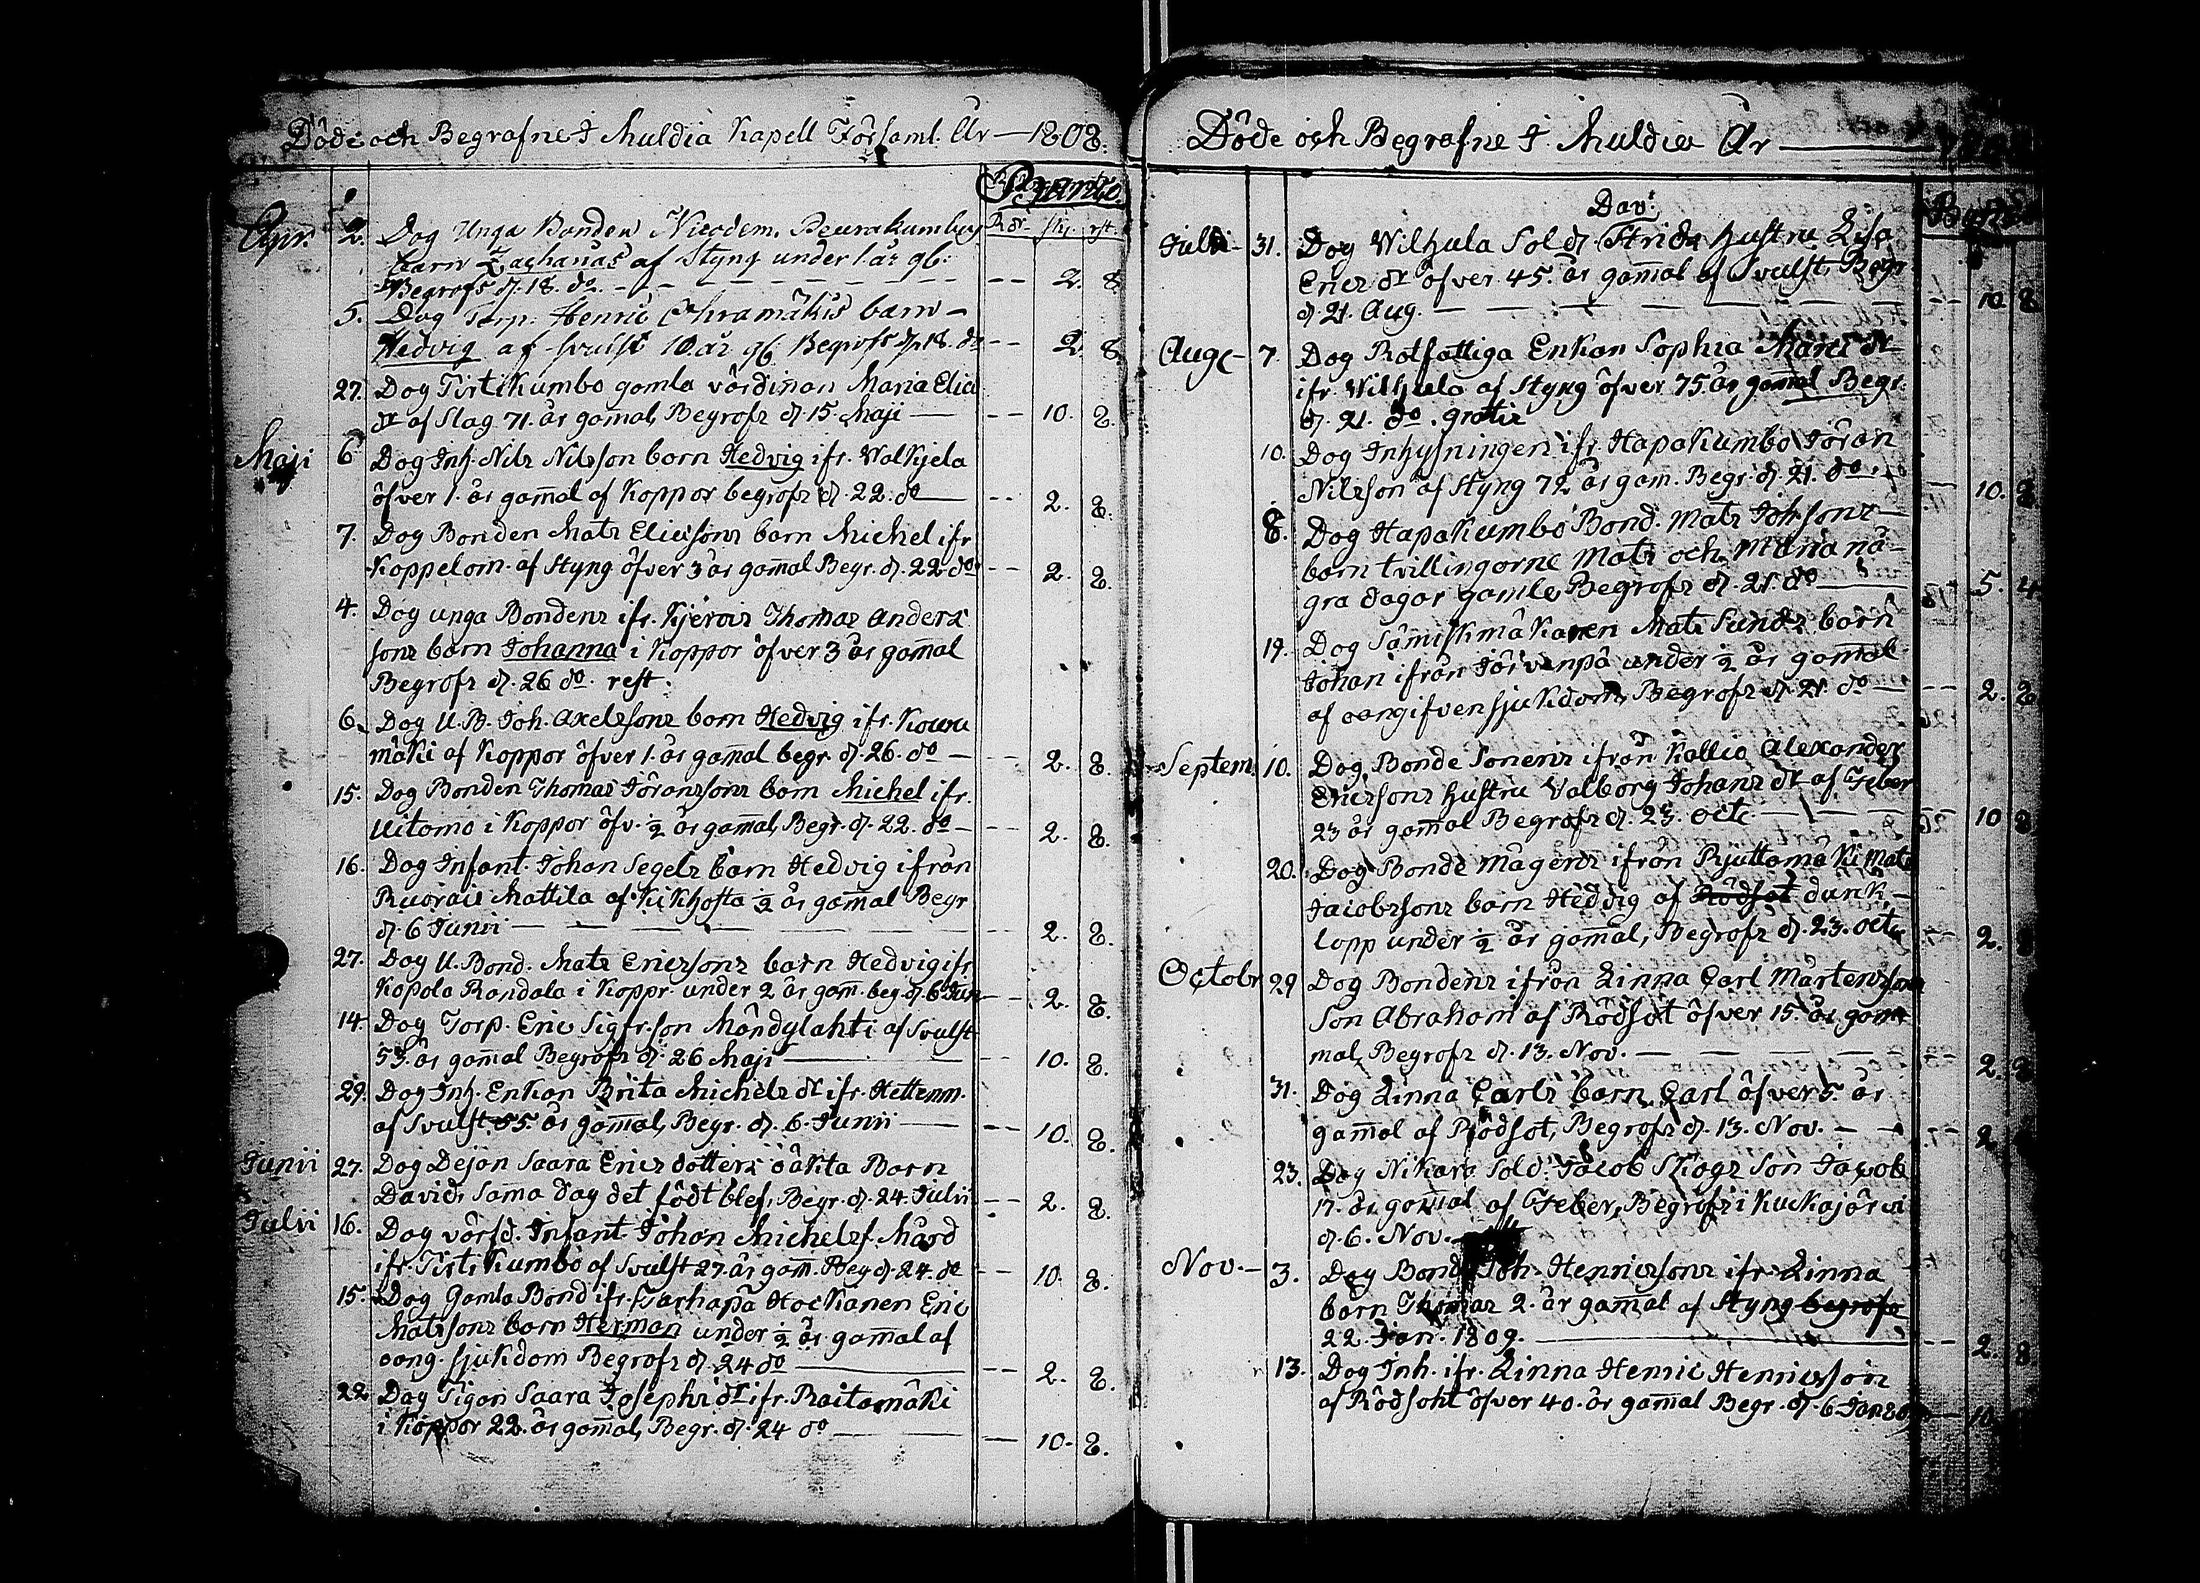 Döde och Begrafne I Muldia Kapell Församl. År — 1808.
Rdr. sk. rst.
Apr. 2. Dog Unga Bonden Nicodem. Peurakumbus
barn Zachariæs af Styng under 1 år gb.
Begrofs d. 18. do. — — 2. 8.
5. Dog Torp. Henric Ohramäkis barn —
Hedvig af svulst 10 år gb. Begrofs d. 18. do — 2. 8.
27. Dog Tirtikumbo gamla värdinan Maria Elia
dr af Slag 71. år gamal, Begrofs d. 15. Maji — 10. 8.
Maji 6 Dog Inh. Nils Nilsson barn Hedvig ifr. Walkjela
öfver 1. år gam̄al af Koppor begrofs d. 22. do — 2. 8.
7. Dog Bonden Mats Elieisons barn Michel ifr
Koppelom. af Styng öfver 3 år gam̄al Begr. d. 22 do — 2. 8.
4. Dog unga Bondens ifr. Kjervis Thomas Anders
sons barn Johanna i Koppor öfver 3 år gam̄al
Begrofs d. 26 do. rest.
6. Dog U. B. Joh. Axelssons barn Hedvig ifr. Kouru
mäki af Koppor öfver 1. år gam̄al begr. d. 26. do — 2. 8.
15. Dog Bonden Thomas Göranssons barn Michel ifr.
Uitomo i Koppor öfv. ½ år gam̄al, Begr. d. 22. do — 2. 8.
16. Dog Infant. Johan Segels barn Hedvig ifrån
Ruorais Mattila af Kikhosta ½ år gam̄al Begr
d. 6 Junii — 2. 8.
27. Dog U. Bond. Mats Ericsons barn Hedvig ifr.
Kopola Randala i Koppr. under 2 år gam̄. beg. d. 6 Jun — 2. 8.
14. Dog Torp. Eric Sigfr.son Mändylahti af Svulst
53. år gam̄al Begrofs d. 26 Maji — 10. 8.
29. Dog Inh. Enkan Brita Michels dr ifr. Kettenn.
af Svulst 55. år gam̄al, Begr. d. 6. Junii — 10. 8.
Junii 27. Dog Dejon Saara Erics dotters oäkta Barn
David, sama dag det födt blef, Begr. d. 24. Julii — 2. 8.
Julii 16. Dog vörfd. Infant. Johan Michelsf. Mård
ifr. Tirtikumbo af Svulst 27. år gam̄. Beg d. 24. do — 10. 8.
15. Dog Gamla Bond ifr. Tarhapä Hockanen Eric
Matssons barn Herman under ½ år gam̄al af
oang. sjukdom Begrofs d. 24 do — 2. 8.
22 Dog Pigan Saara Josephs dr ifr. Raitamäki
i Koppor 22. år gam̄al, Begr. d. 24 do — 10. 8.
Döde och Begrafne I Muldia År —
Dav:
Julii — 31. Dog Wilhula Sold. Strids hustru Lisa
Erics dr öfver 45. år gam̄al af Svulst, Begr
d. 21. Aug. — 10. 8
Aug. — 7. Dog Rotfattiga Enkan Sophia Marci dr
ifr. Wilhula af Styng öfver 75. år gam̄al Begr.
d. 21. do. gratis
10. Dog Inhysningen ifr. Hapakumbo Jöran
Nilsson af Styng 72 år gam. Begr. d. 21. do. 10. 8
8. Dog Hapakumbo Bond. Mats Johsons —
barn tvillingarne Mats och Maria nå-
gra dagar gamle, Begrofs d. 21. do — 5. 4
19. Dog Sämiskmakaren Mats Sunds barn
Johan ifrån Järvenpä under ½ år gam̄al
af oangifven sjukdom, Begrofs d. 21. do — 2. 8
Septem. 10. Dog Bonde Sonens ifrån Kallio Alexander
Ericsons hustru Valborg Johans dr af Feber
23 år gam̄al Begrofs d. 23. Oct. — 10 8
20. Dog Bonde Mågens ifrån Pyuttamäki Mats
Jacobssons barn Hedvig af Rödsot durk-
lopp under ½ år gam̄al, Begrofs d. 23. Oct. 2. 8
Octobr 29 Dog Bondens ifrån Linna Carl Mårtenssons
Son Abraham af Rödsot öfver 15. år gam-
mal, Begrofs d. 13. Nov. — 2. 8
31. Dog Linna Carls barn Carl öfver 5. år
gam̄al af Rödsot, Begrofs d. 13. Nov. — 2
23. Dog Nikara Sold. Jacob Skogs Son Jacob
17. år gam̄al af Feber, Begrofs i Kuckajärvi
d. 6. Nov.
Nov. — 3. Dog Bond. Joh. Henricsons ifr. Linna
barn Thomas 2. år gam̄al af Styng begrofs
22. Jan. 1809. — 2. 8.
13. Dog Inh. ifr. Linna Henric Henricsson
af Rödsoht öfver 40. år gam̄al Begr. d. 6 Jan 809 — 10